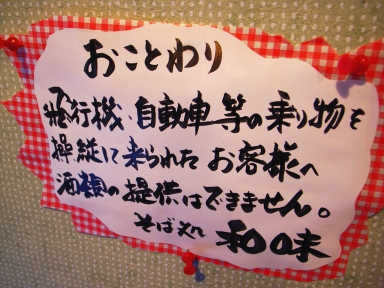 おことわり
飛行機、自動車等の乗り物を
操縦して来られたお客様へ
酒類の提供はできません。
そば処 和味